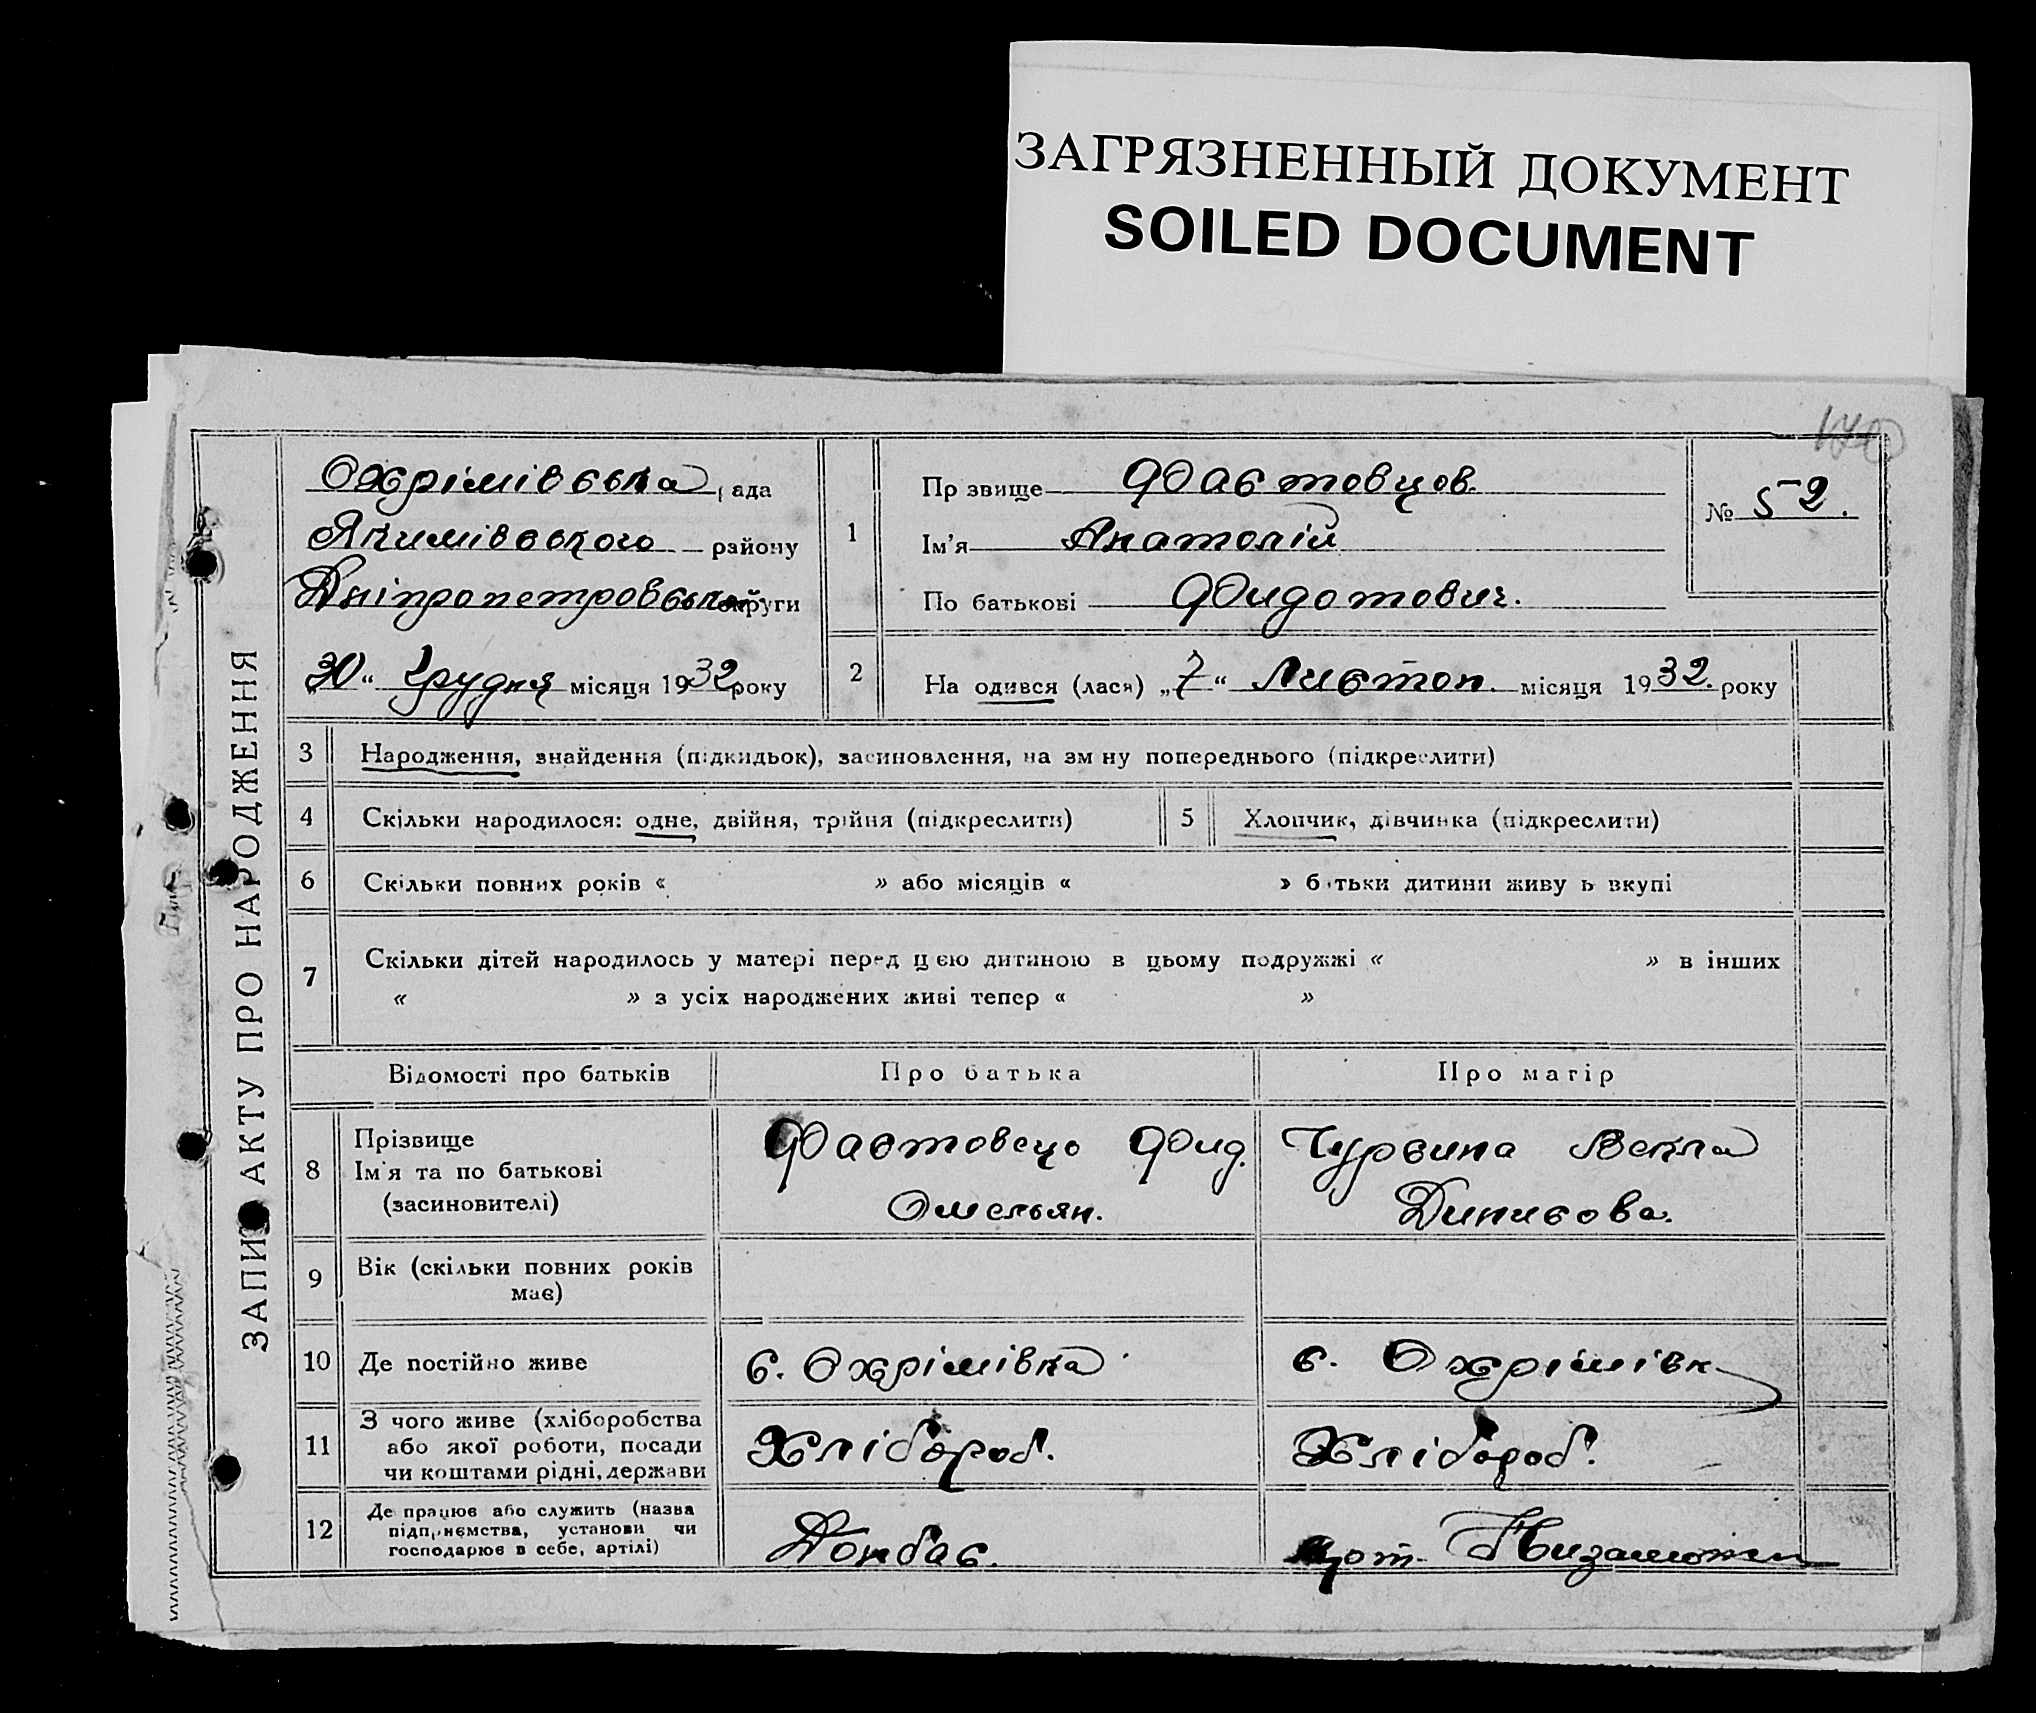 ЗАГРЯЗНЕННЫЙ ДОКУМЕНТ
SOILED DOCUMENT
170
ЗАПИС АКТУ ПРО НАРОДЖЕННЯ
Охрімівська рада
Якимівського району
Дніпропетровська округи
„30“ Грудня місяця 1932 року
1
Прізвище Фастовцов.
Ім’я Анатолій
По батькові Фидотович.
№ 52.
2
Народився (лася) „7“ Листоп. місяця 1932. року
3 Народження, знайдення (підкидьок), засиновлення, на зміну попереднього (підкреслити)
4 Скільки народилося: одне, двійня, трійня (підкреслити)
5 Хлопчик, дівчинка (підкреслити)
6 Скільки повних років « » або місяців « » батьки дитини живуть вкупі
7 Скільки дітей народилось у матері перед цією дитиною в цьому подружжі « » в інших
« » з усіх народжених живі тепер « »
Відомості про батьків
Про батька
Про матір
8 Прізвище
Ім’я та по батькові
(засиновителі)
Фастовець Фид.
Омельян.
Чурсина Векла
Динисова.
9 Вік (скільки повних років
має)
10 Де постійно живе
с. Охрімівка
с. Охрімівк
11 З чого живе (хліборобства
або якої роботи, посади
чи коштами рідні, держави
Хлібороб.
Хлібороб.
12 Де працює або служить (назва
підприємства, установи чи
господарює в себе, артілі)
Донбас.
Незаможн